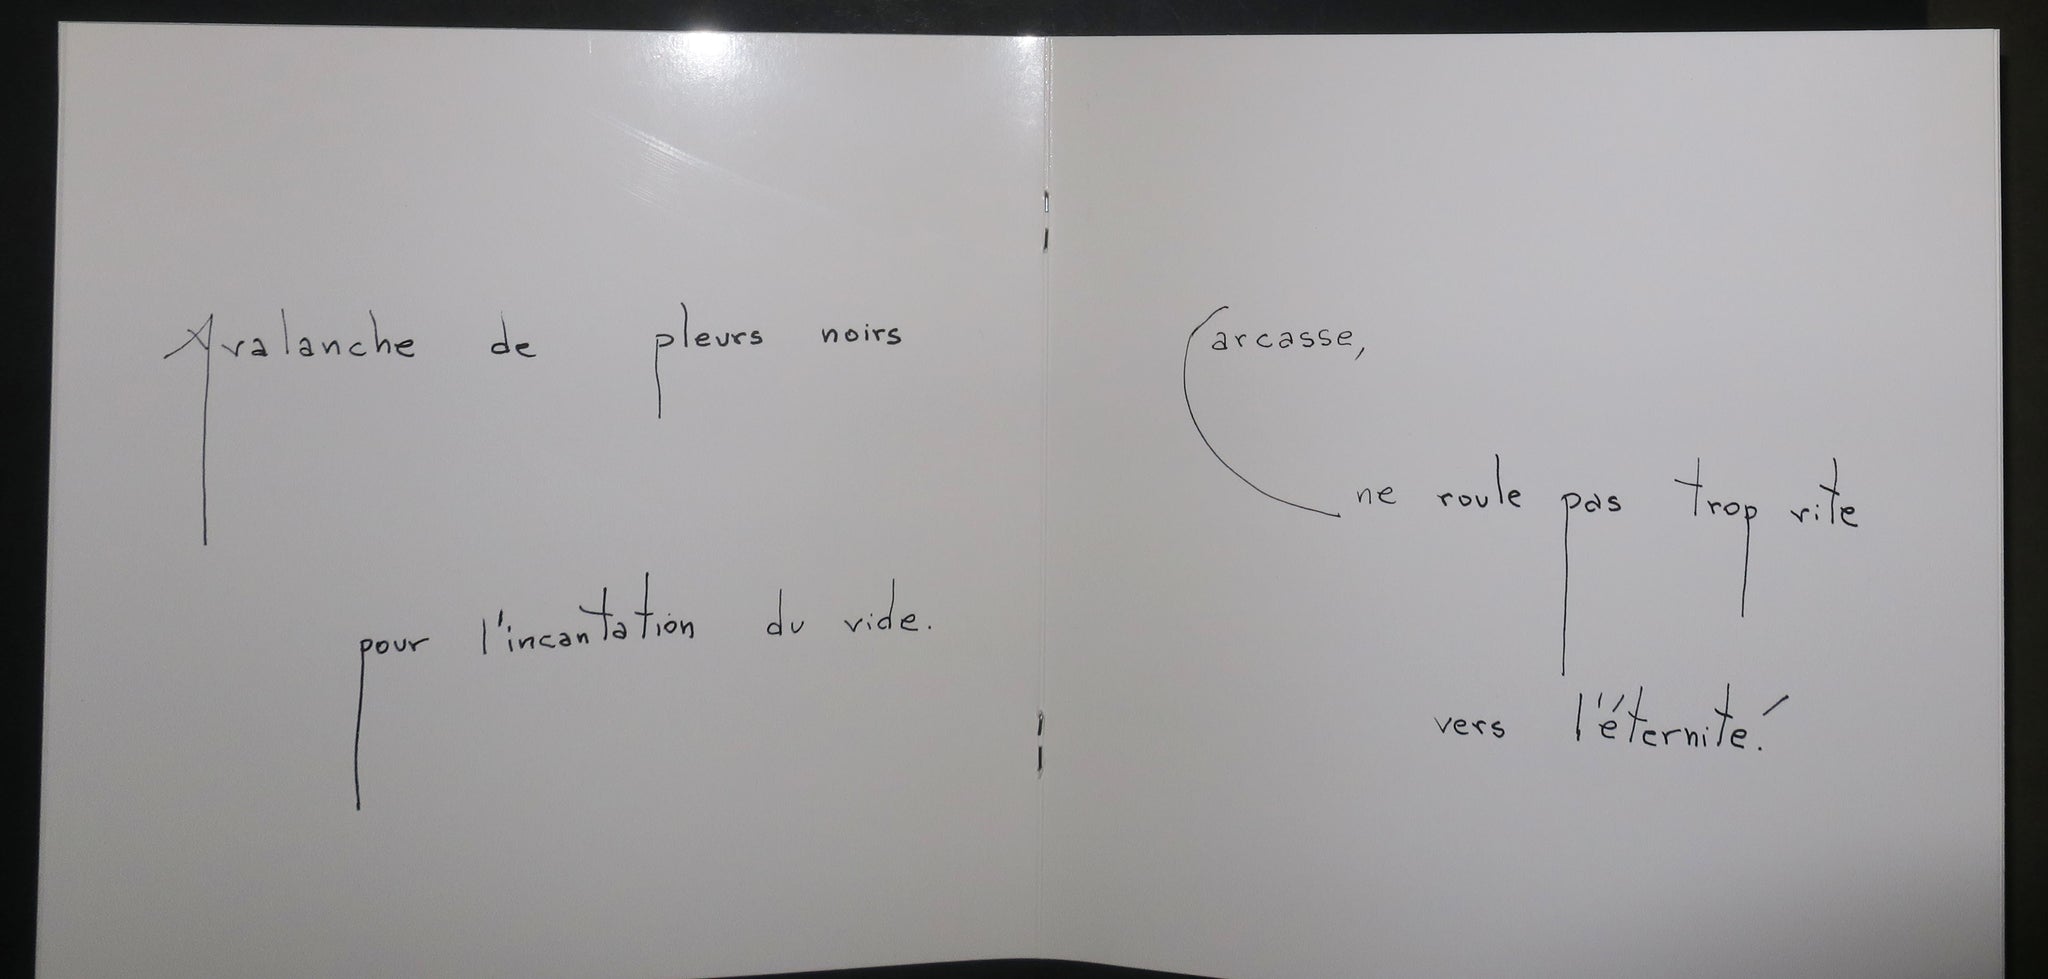 Avalanche de pleurs noirs
pour l'incantation du vide.
Carcasse,
ne roule pas trop vite
vers l'éternité.